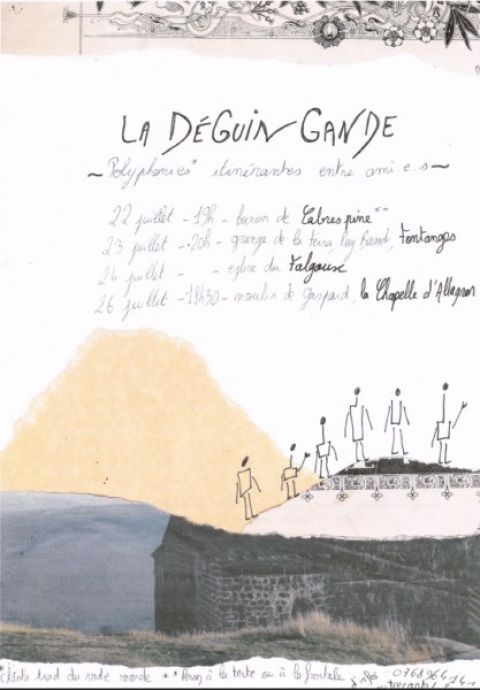 LA DÉGUINGANDE
~ Polyphonies* itinérantes entre ami.e.s ~
22 juillet - 19h - buron de Cabrespine**
23 juillet - 20h - grange de la, Fontanges
24 juillet - - église du Falgoux
26 juillet - 18h30 - moulin de gaspard, la Chapelle d'Allagnon
trad du vaste monde ** à la tente ou à la frontale